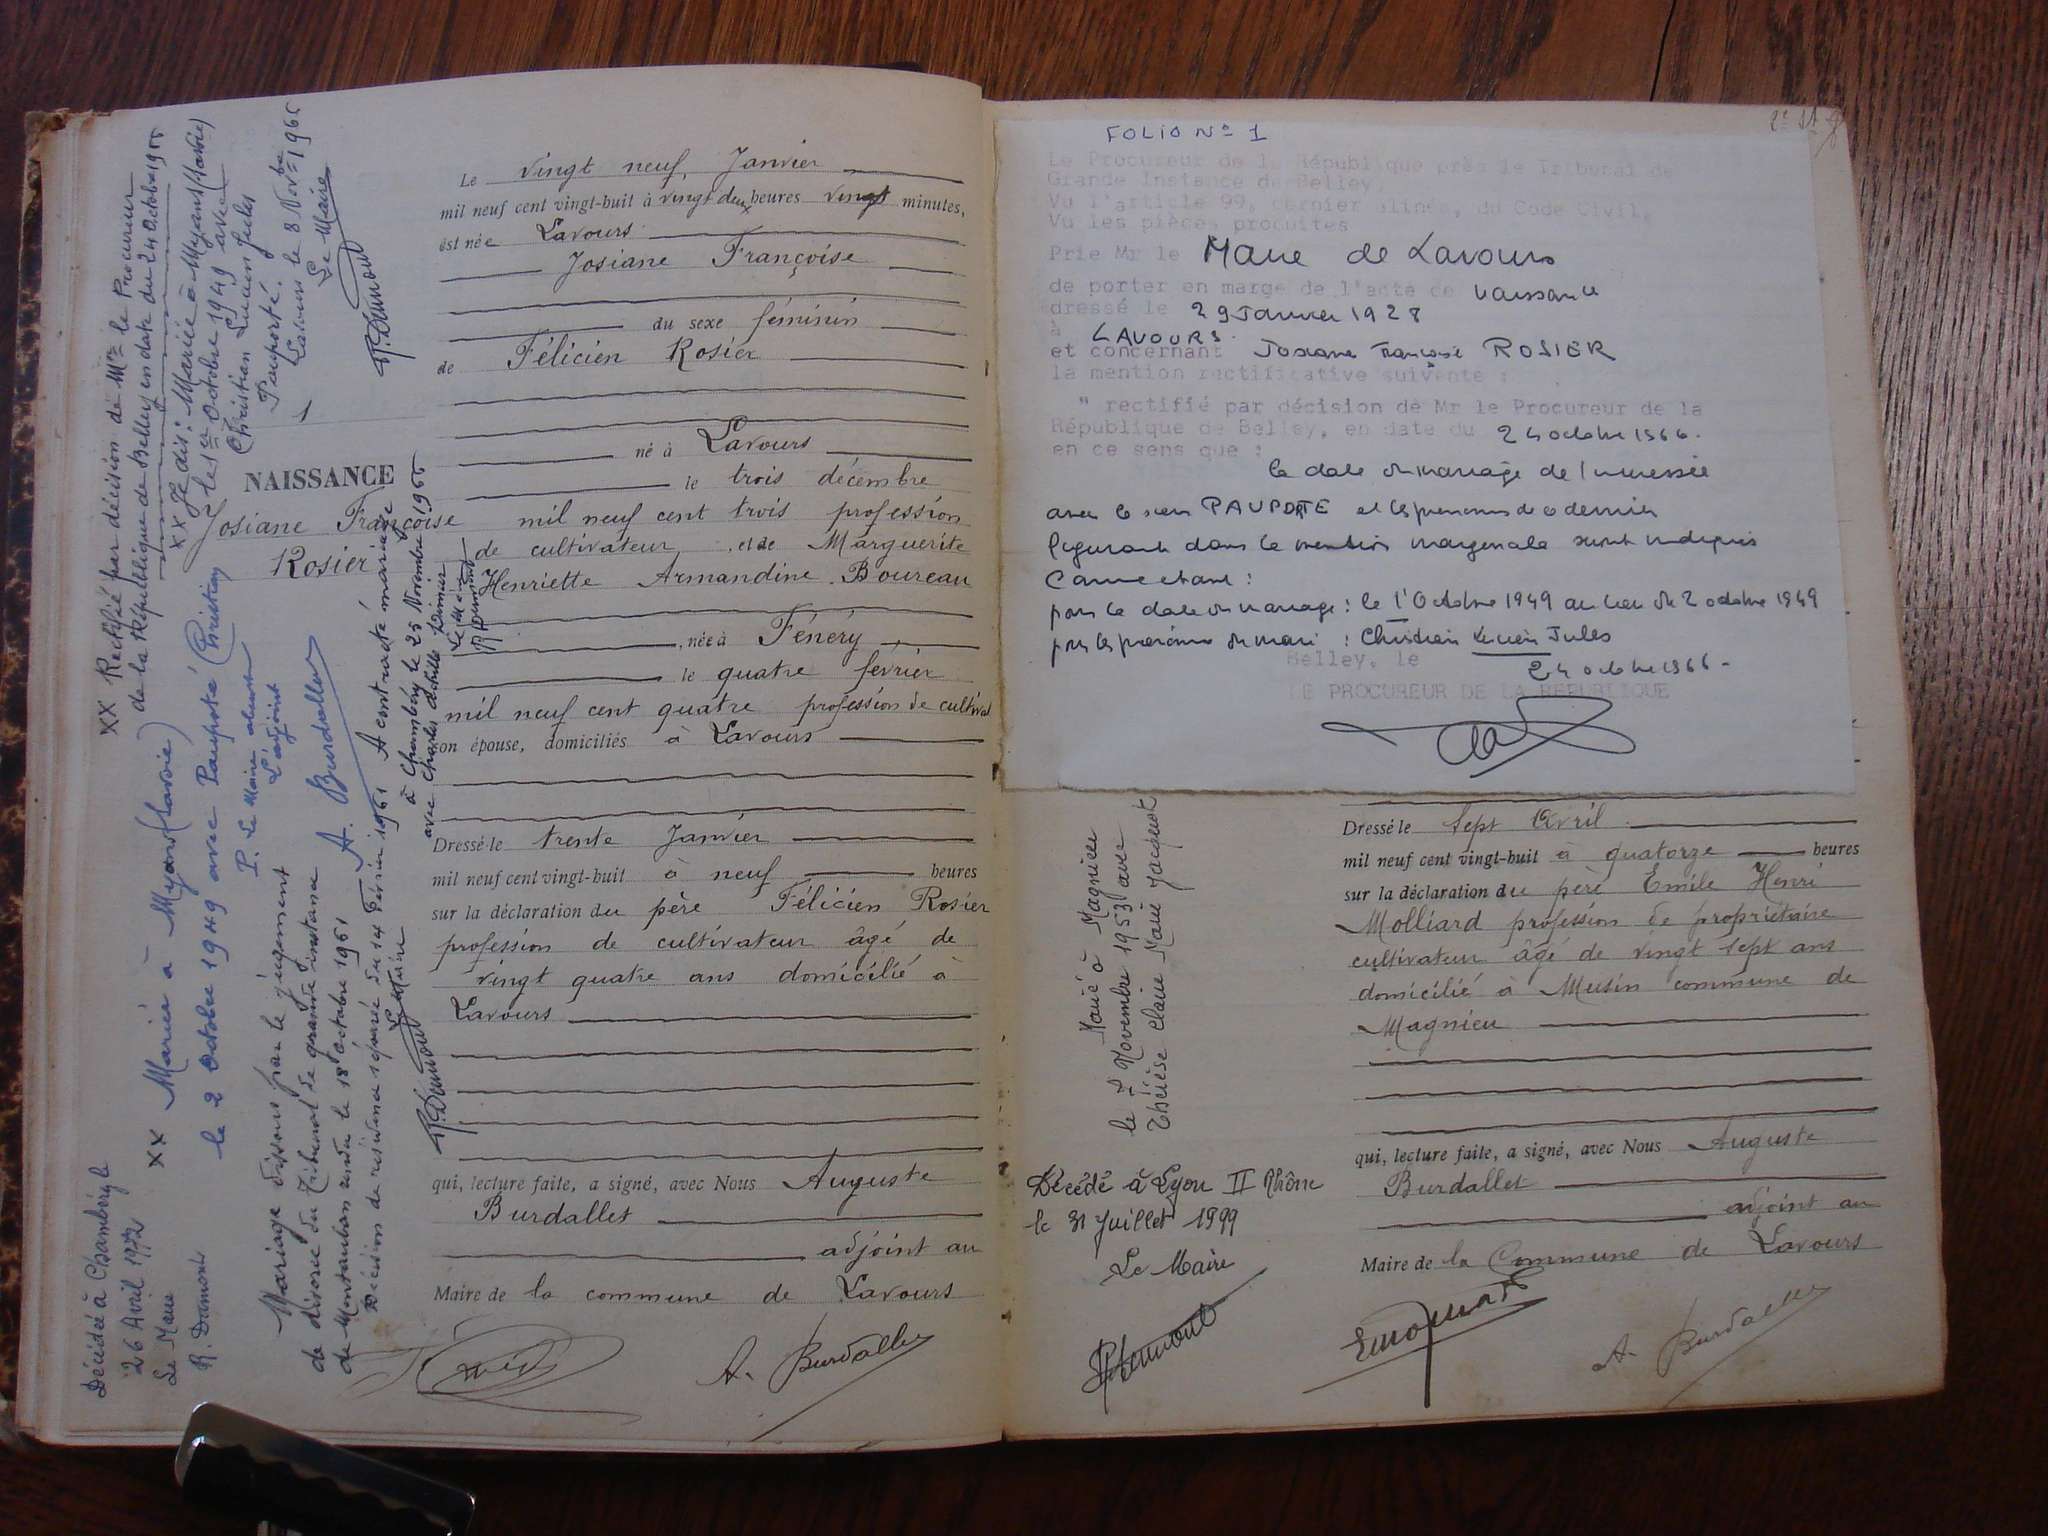 Le vingt neuf, Janvier
mil neuf cent vingt-huit à vingt deux heures vingt minutes,
est née Lavours
Josiane Françoise
du sexe féminin
de Félicien Rosier
né à Lavours
le trois décembre
mil neuf cent trois profession
de cultivateur, et de Marguerite
Henriette Armandine Boureau
, née à Fénery
le quatre février
mil neuf cent quatre profession de cultivat
on épouse, domiciliés à Lavours
Dressé le trente Janvier
mil neuf cent vingt-huit à neuf heures
sur la déclaration du père Félicien Rosier
profession de cultivateur âgé de
vingt quatre ans domicilié à
Lavours
qui, lecture faite, a signé, avec Nous Auguste
Burdallet
adjoint au
Maire de la commune de Lavours
A. Burdallet
NAISSANCE
Josiane Françoise
Rosier
Décédée à Chambéry le
26 Avril 1972
Le Maire
R. Dumont
XX Mariée à Myans (Savoie)
le 2 Octobre 1949 avec Pauporté (Christian)
P. Le Maire absent
L'adjoint
A. Burdallet
XX Rectifié par décision de Mr le Procureur
de la République de Belley en date du 24 Octobre 1966
XX Je dis: Mariée à Myans (Savoie)
le 1er Octobre 1949 avec
Christian Lucien Jules
Pauporté.
Lavours le 8 Novbre 1966
Le Maire
R. Dumont
Mariage dissous par le jugement
de divorce du Tribunal de grande instance
de Montauban rendu le 18 Octobre 1961
Décision de résidence séparée du 14 Février 1961
Le Maire
R. Dumont
A contracté mariage
à Chambéry le 25 Novembre 1966
avec Charles Achille Dimier
Le Maire
R. Dumont
FOLIO Nº 1
Le Procureur de la République près le Tribunal de
Grande Instance de Belley,
Vu l'article 99, dernier alinéa, du Code Civil,
Vu les pièces produites
Prie Mr le Maire de Lavours
de porter en marge de l'acte de naissance
dressé le 29 Janvier 1928
à LAVOURS.
et concernant Josiane Françoise ROSIER
la mention rectificative suivante :
" rectifié par décision de Mr le Procureur de la
République de Belley, en date du 24 octobre 1966.
en ce sens que :
la date du mariage de l'intéressée
avec le sieur PAUPORTE et les prénoms de ce dernier
figurant dans la mention marginale sont indiqués
comme étant :
pour la date du mariage : le 1er Octobre 1949 au lieu du 2 octobre 1949
pour les prénoms du mari : Christian Lucien Jules
Belley, le 24 octobre 1966 -
LE PROCUREUR DE LA REPUBLIQUE
Marié à Magnieu
le 7 Novembre 1953 avec
Thérèse Claire Marie Jacquot
Décédé à Lyon II Rhône
le 31 Juillet 1999
Le Maire
Dressé le sept Avril
mil neuf cent vingt-huit à quatorze heures
sur la déclaration du père Emile Henri
Molliard profession de propriétaire
cultivateur âgé de vingt sept ans
domicilié à Musin commune de
Magnieu
qui, lecture faite, a signé, avec Nous Auguste
Burdallet
adjoint au
Maire de la Commune de Lavours
A. Burdallet